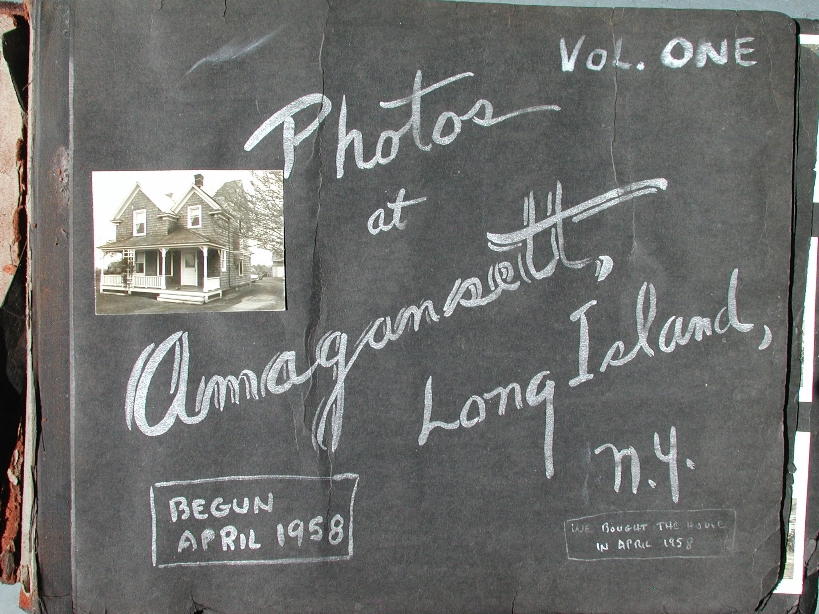 VOL. ONE
Photos
at
Amagansett,
Long Island,
N.Y.
BEGUN
APRIL 1958
WE BOUGHT THE HOUSE
IN APRIL 1958